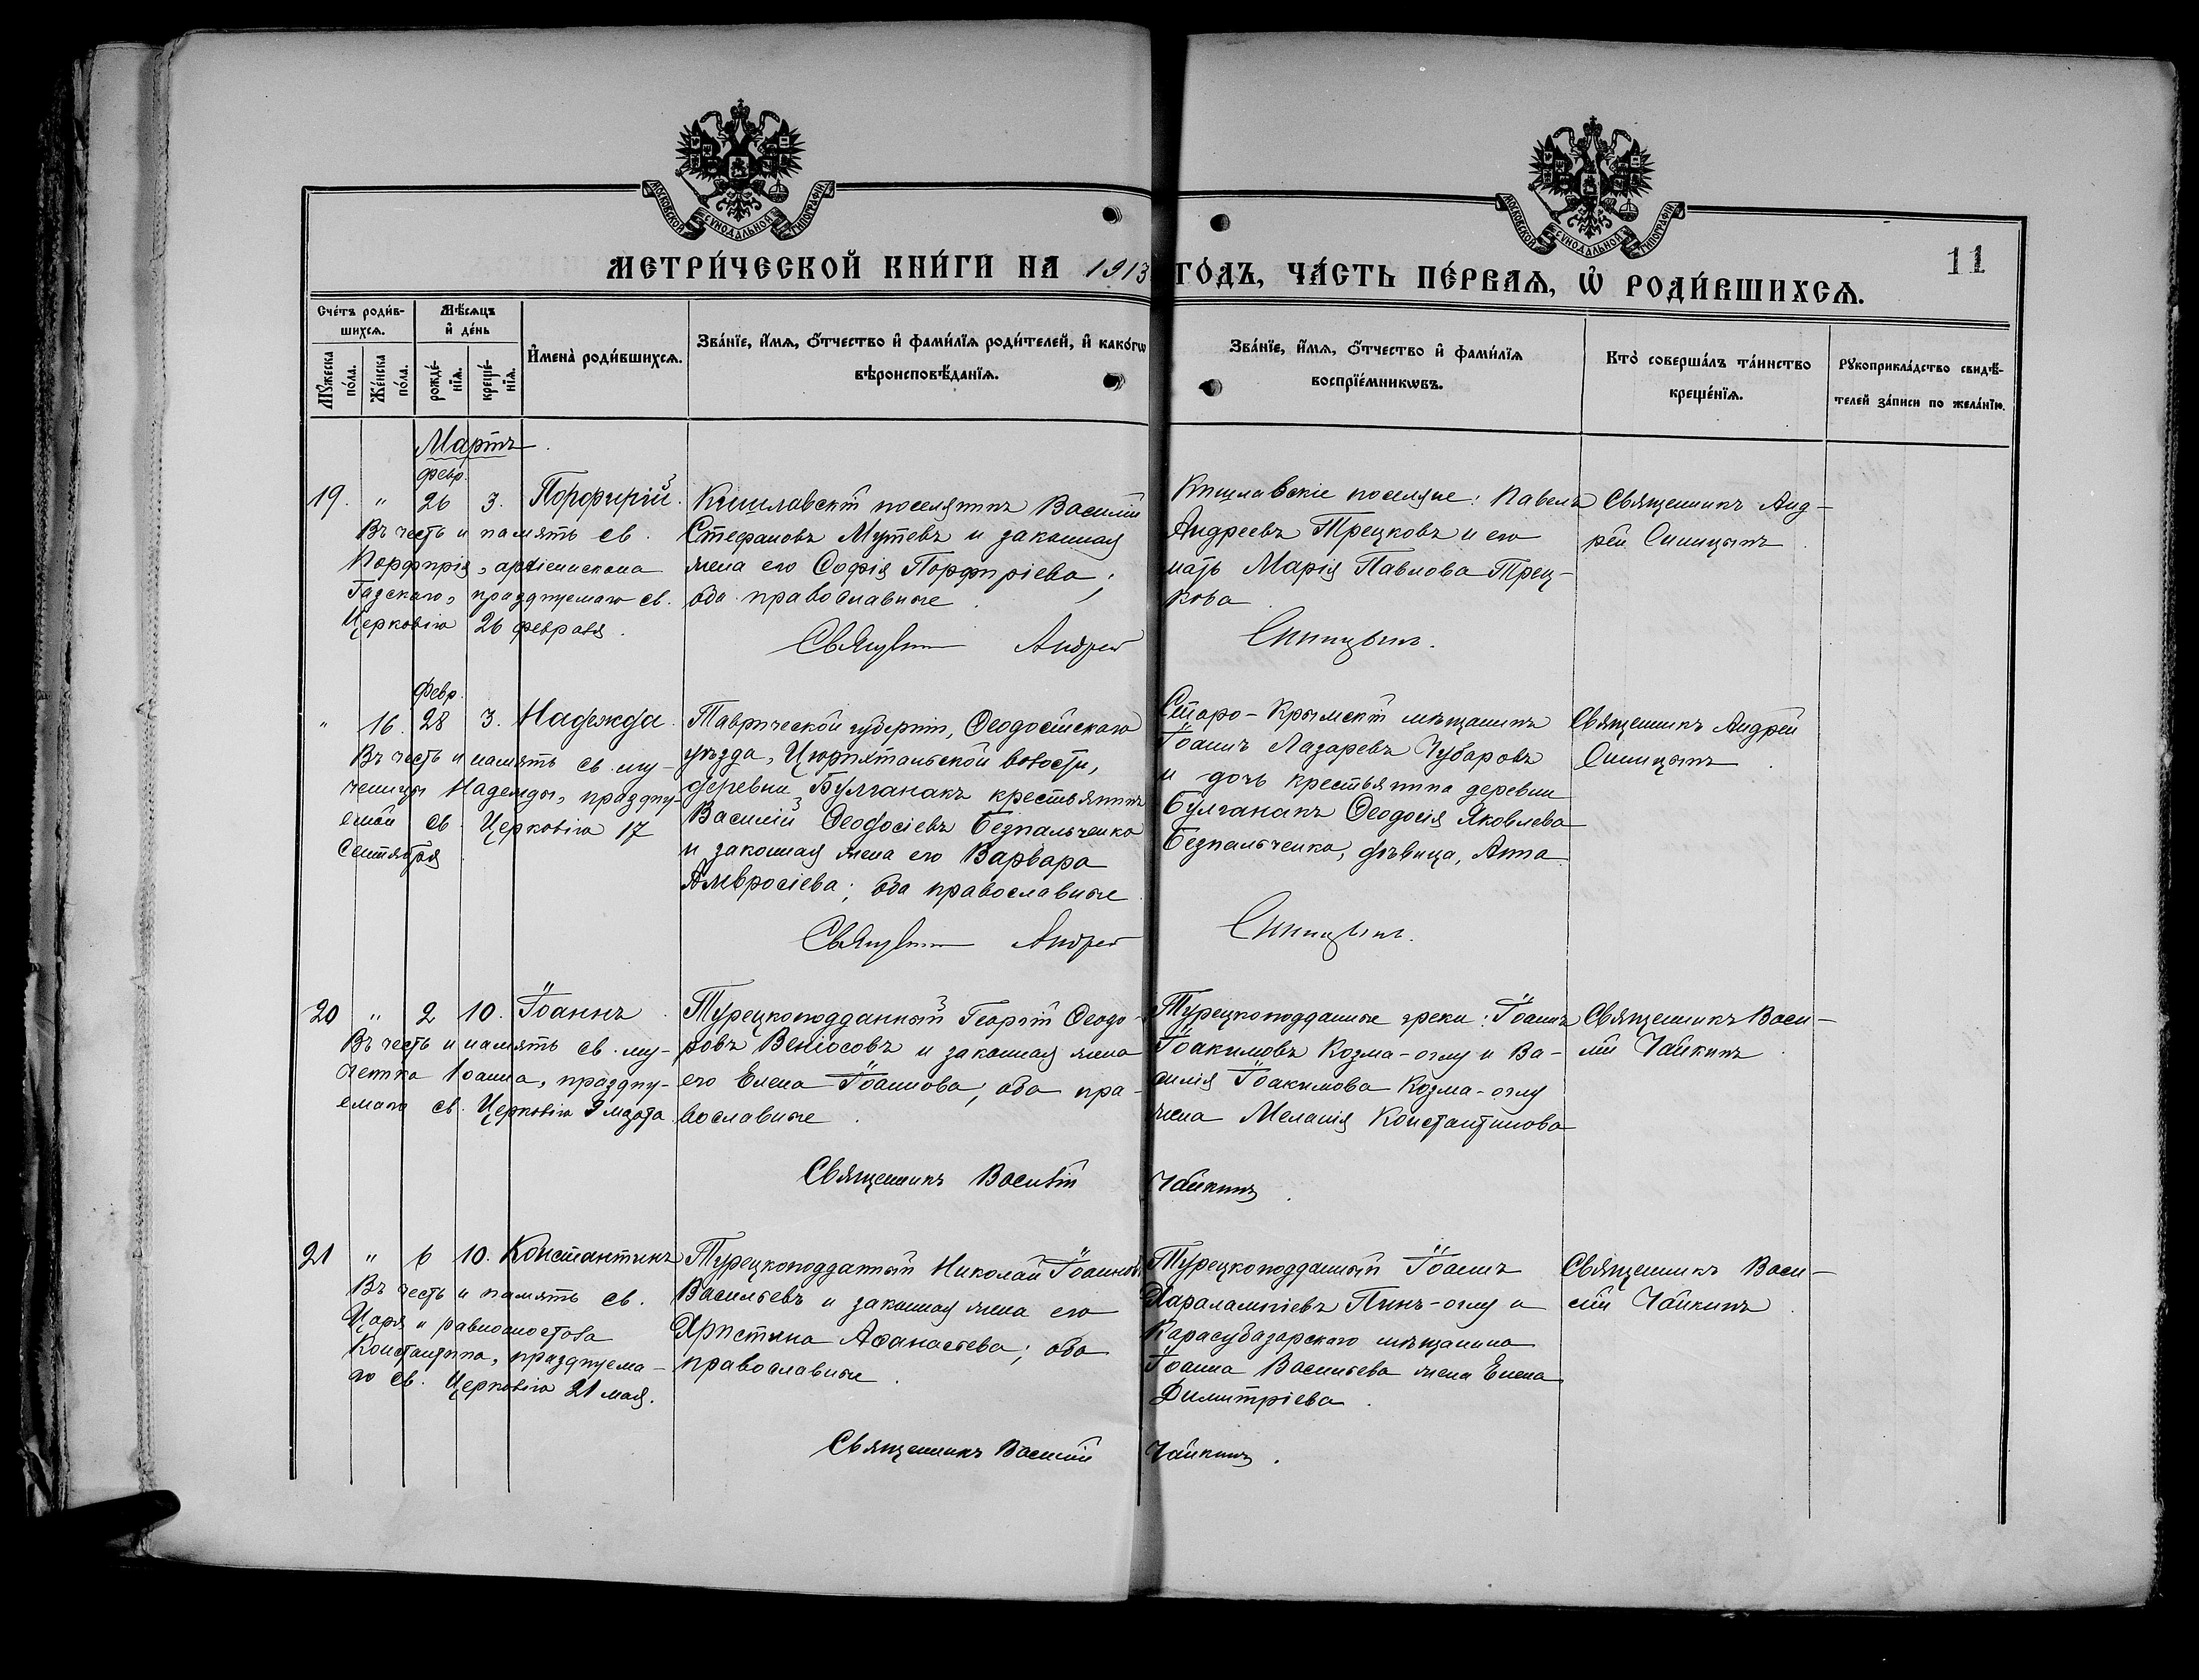 МОСКОВСКОЙ СѴНОДАЛЬНОЙ ТИПОГРАФІИ
МОСКОВСКОЙ СѴНОДАЛЬНОЙ ТИПОГРАФІИ
11
МЕТРИ́ЧЕСКОЙ КНИ́ГИ НА 1913 ГО́ДЪ, ЧА́СТЬ ПЕ́РВАѦ, Ѡ҆ РОДИ́ВШИХСѦ.
Сче́тъ роди́в-
шихсѧ.
Мѣ́сѧцъ
и҆ де́нь
Мꙋ́жеска
по́ла.
Же́нска
по́ла.
рожде́-
нїѧ.
креще́-
нїѧ.
И҆мена̀ роди́вшихсѧ.
Зва́нїе, и҆́мѧ, ѻ҆́тчество и҆ фами́лїѧ роди́телей, и҆ како́гѡ
вѣроисповѣ́данїѧ.
Зва́нїе, и҆́мѧ, ѻ҆́тчество и҆ фами́лїѧ
воспрїе́мникѡвъ.
Кто̀ соверша́лъ та́инство
креще́нїѧ.
Рꙋкоприкла́дство свидѣ́-
телей за́писи по жела́нїю.
Мартъ
февр.
19. " 26 3. Порфирій.
Въ честь и память св.
Порфирія, архіепископа
Газскаго, празднуемаго св.
Церковію 26 февраля.
Кишлавскій поселянинъ Василій
Стефановъ Мутевъ и законная
жена его Софія Порфиріева;
оба православные
Кишлавскіе поселяне: Павелъ
Андреевъ Трецковъ и его
мать Марія Павлова Трец-
кова
Священникъ Анд-
рей Синицынъ
Священникъ Андрей Синицынъ.
Февр.
" 16. 28 3. Надежда.
Въ честь и память св. му-
ченицы Надежды, праздну-
емой св. Церковію 17
сентября
Таврической губерніи, Ѳеодосійскаго
уѣзда, Цюрихтальской волости,
деревни Булганакъ крестьянинъ
Василій Ѳеодосіевъ Безпальченко
и законная жена его Варвара
Амвросіева; оба православные
Старо-Крымскій мѣщанинъ
Іоаннъ Лазаревъ Чубаровъ
и дочь крестьянина деревни
Булганакъ Ѳеодосія Яковлева
Безпальченко, дѣвица, Анна
Священникъ Андрей
Синицынъ
Священникъ Андрей Синицынъ.
20 " 2 10. Іоаннъ
Въ честь и память св. му-
ченика Іоанна, праздну-
емаго св. Церковію 9 марта
Турецкоподданный Георгій Ѳеодо-
ровъ Веніосовъ и законная жена
его Елена Іоаннова; оба пра-
вославные
Турецкоподданные греки: Іоаннъ
Іоакимовъ Козма-оглу и Ва-
силія Іоакимова Козма-оглу
жена Меланія Константинова
Священникъ Васи-
лій Чайкинъ
Священникъ Василій Чайкинъ
21 " 6 10. Константинъ
Въ честь и память св.
Царя и равноапостола
Константина, празднуема-
го св. Церковію 21 мая.
Турецкоподданный Николай Іоанновъ
Васильевъ и законная жена его
Христина Аѳанасьева; оба
православные
Турецкоподданный Іоаннъ
Харалампіевъ Пинъ-оглу и
Карасубазарскаго мѣщанина
Іоанна Васильева жена Елена
Димитріева
Священникъ Васи-
лій Чайкинъ
Священникъ Василій Чайкинъ.